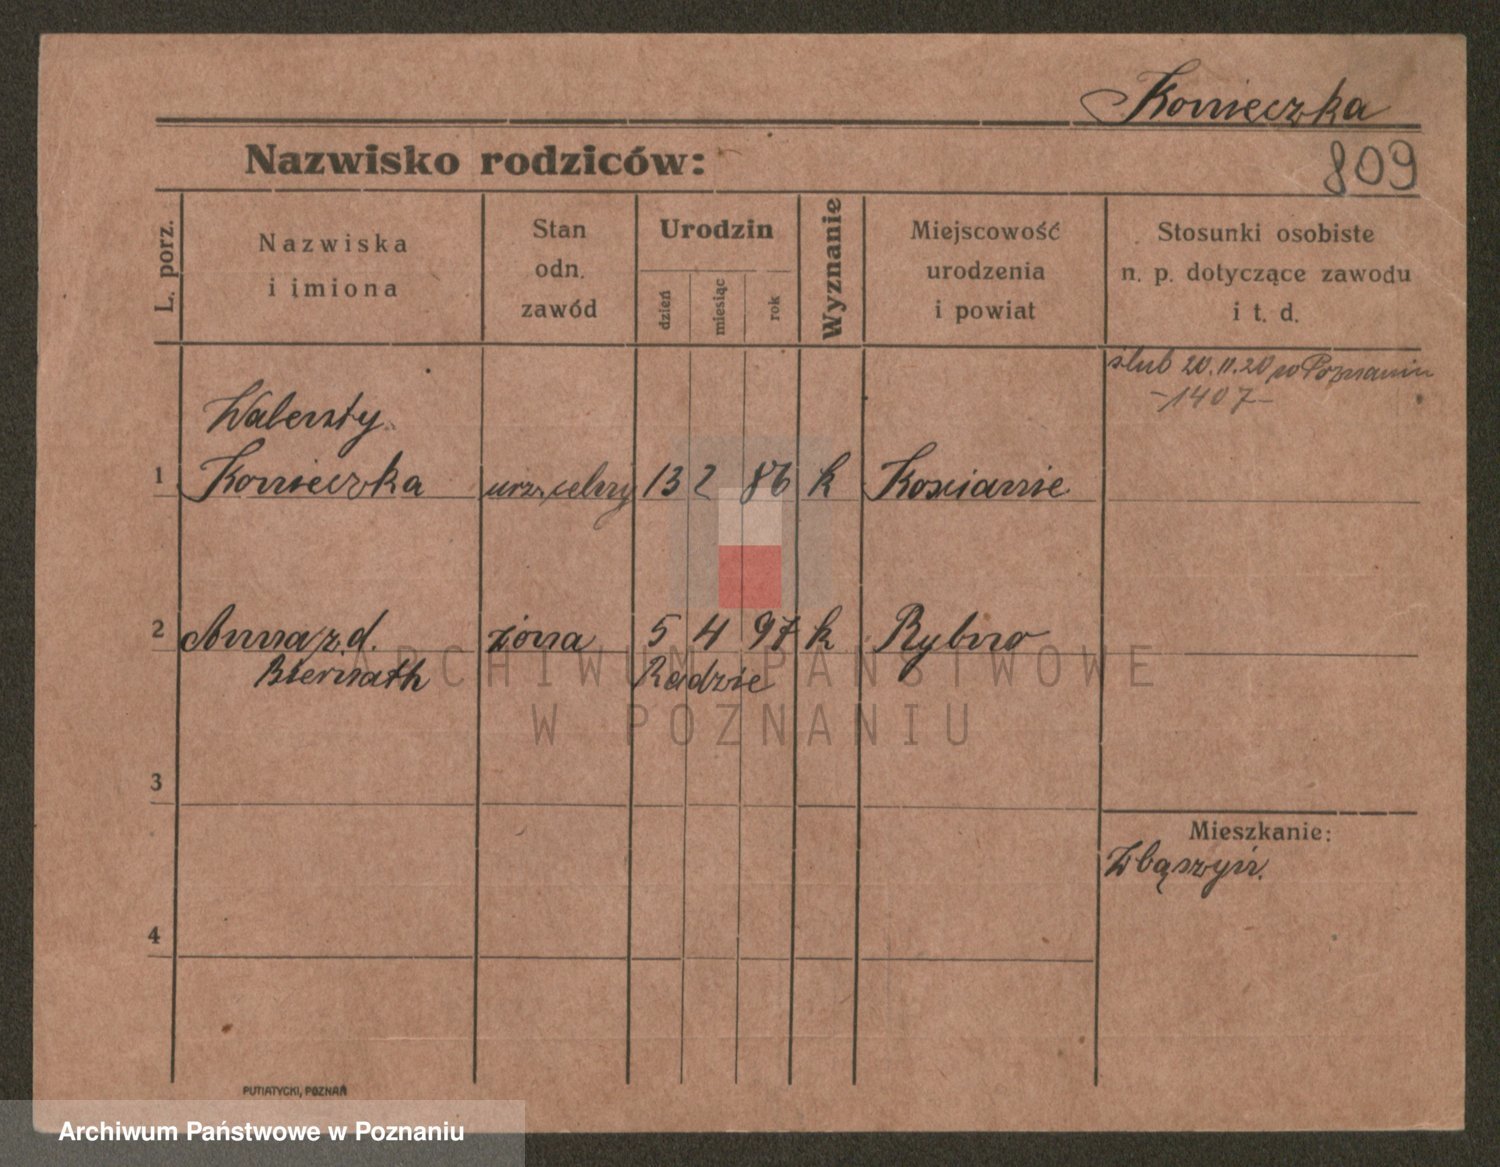 Konieczka
Nazwisko rodziców:
809
L. porz.
Nazwiska
i imiona
Stan
odn.
zawód
Urodzin
dzień
miesiąc
rok
Wyznanie
Miejscowość
urodzenia
i powiat
Stosunki osobiste
n. p. dotyczące zawodu
i t. d.
ślub 20.11.20 w Poznaniu
-1407-
Walenty
1 Konieczka urz. celny 13 2 86 k Kościanie
2 Anna z. d. żona 5 4 97 k Rybno
Biernath Radzie
ARCHIWUM PAŃSTWOWE
W POZNANIU
3
Mieszkanie:
Zbąszyń.
4
PUTIATYCKI, POZNAŃ
Archiwum Państwowe w Poznaniu